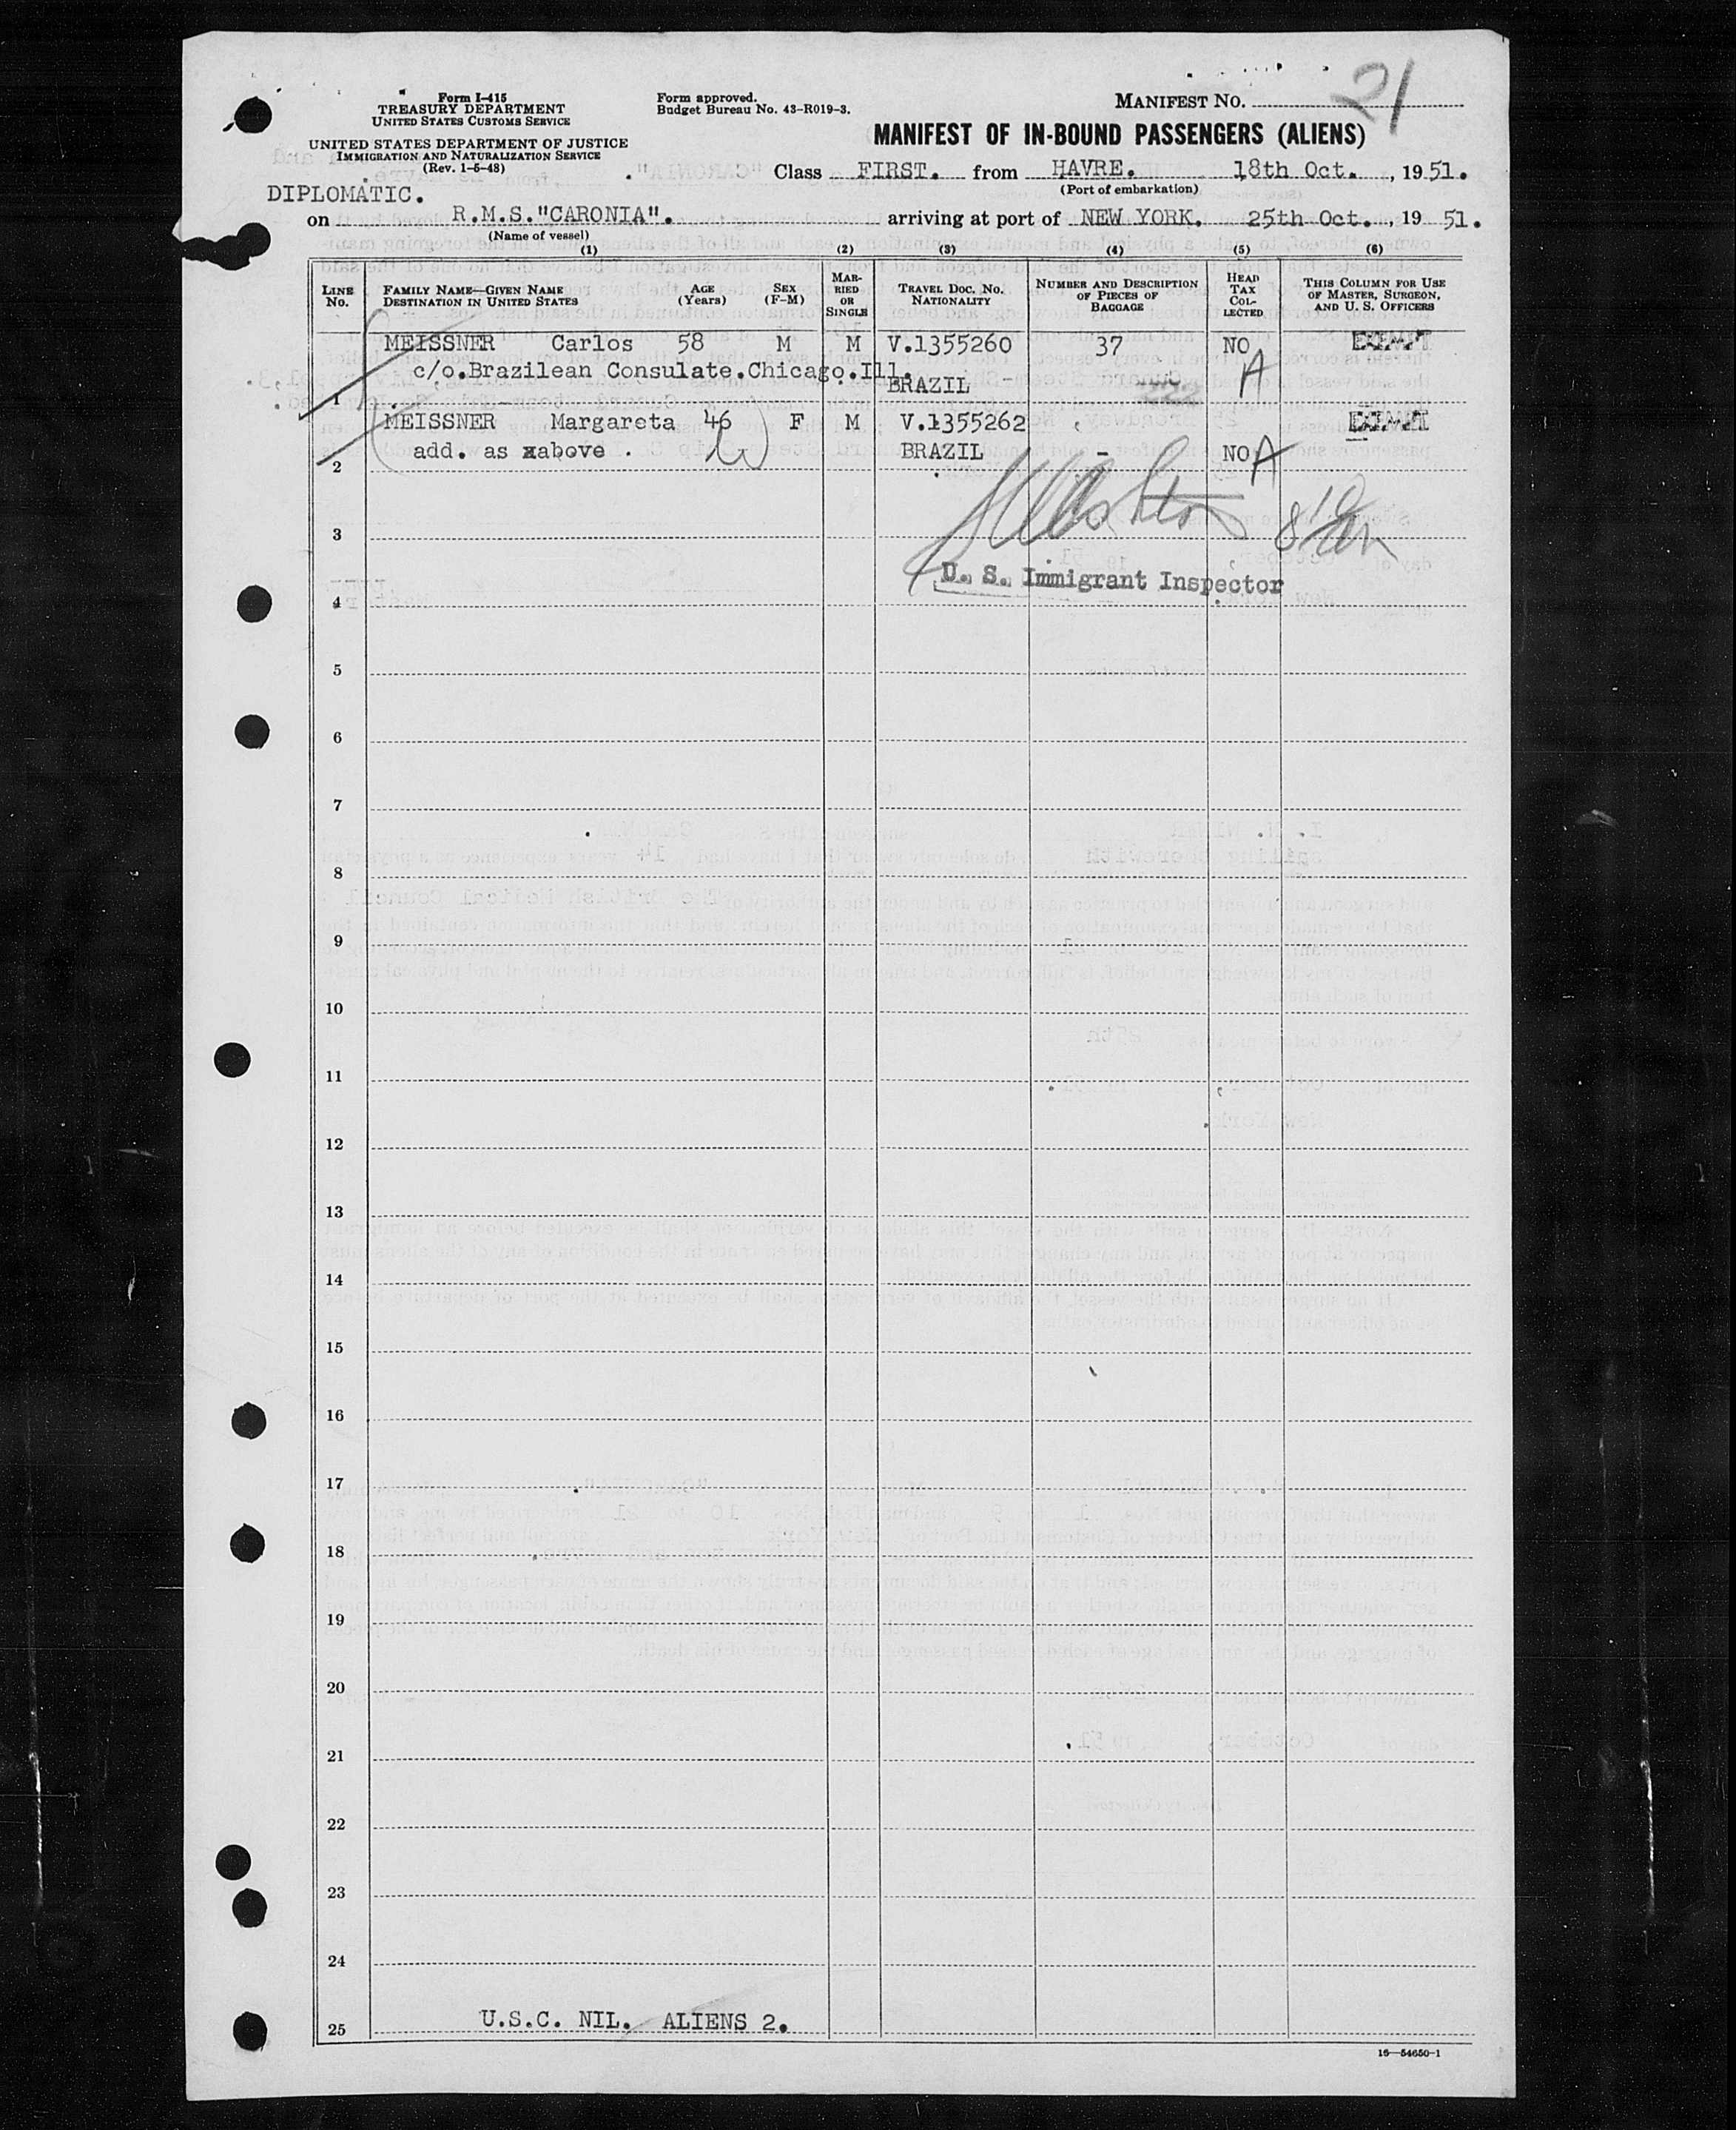 21
Form I-415
TREASURY DEPARTMENT
UNITED STATES CUSTOMS SERVICE
Form approved.
Budget Bureau No. 43-R019-3.
MANIFEST NO.
UNITED STATES DEPARTMENT OF JUSTICE
IMMIGRATION AND NATURALIZATION SERVICE
(Rev. 1-5-48)
MANIFEST OF IN-BOUND PASSENGERS (ALIENS)
Class FIRST. from HAVRE. 18th Oct. , 1951.
(Port of embarkation)
DIPLOMATIC.
on R.M.S."CARONIA". arriving at port of NEW YORK. 25th Oct. , 19 51.
(Name of vessel)
(1) (2) (3) (4) (5) (6)
LINE No. FAMILY NAME—GIVEN NAME DESTINATION IN UNITED STATES AGE (Years) SEX (F-M) MARRIED OR SINGLE TRAVEL DOC. NO. NATIONALITY NUMBER AND DESCRIPTION OF PIECES OF BAGGAGE HEAD TAX COLLECTED THIS COLUMN FOR USE OF MASTER, SURGEON, AND U. S. OFFICERS
MEISSNER Carlos 58 M M V.1355260 37 NO EXEMPT
c/o.Brazilean Consulate.Chicago.Ill.
BRAZIL A
1
MEISSNER Margareta 46 F M V.1355262 EXEMPT
add. as xabove . BRAZIL - NO A
2
3
U. S. Immigrant Inspector
4
5
6
7
8
9
10
11
12
13
14
15
16
17
18
19
20
21
22
23
24
25 U.S.C. NIL. ALIENS 2.
16—54650-1